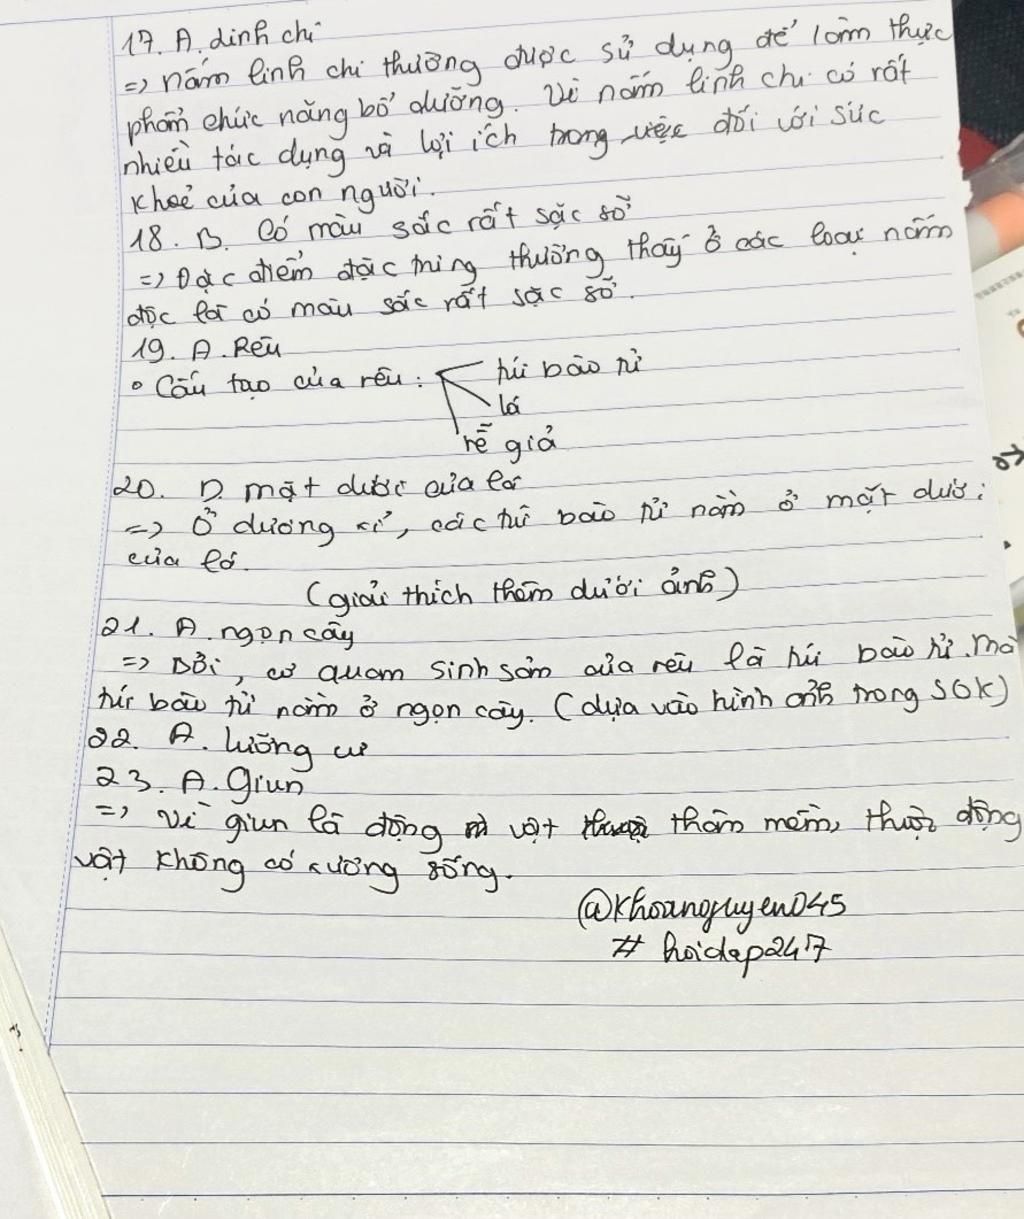 17. A. linh chi
=> Nấm linh chi thường được sử dụng để làm thực
phẩm chức năng bổ dưỡng. Vì nấm linh chi có rất
nhiều tác dụng và lợi ích trong việc đối với sức
khoẻ của con người.
18. B. Có màu sắc rất sặc sỡ
=> Đặc điểm đặc trưng thường thấy ở các loại nấm
độc là có màu sắc rất sặc sỡ.
19. A. Rêu
• Cấu tạo của rêu: túi bào tử
lá
rễ giả
20. D. mặt dưới của lá
=> Ở dương xỉ, các túi bào tử nằm ở mặt dưới
của lá.
(giải thích thêm dưới ảnh)
21. A. ngọn cây
=> Bởi, cơ quan sinh sản của rêu là túi bào tử. Mà
túi bào tử nằm ở ngọn cây. (dựa vào hình ảnh trong SGK)
22. A. lưỡng cư
23. A. Giun
=> Vì giun là động vật thân mềm, thuộc động
vật không có xương sống.
@khoanguyen045
# hoidap247